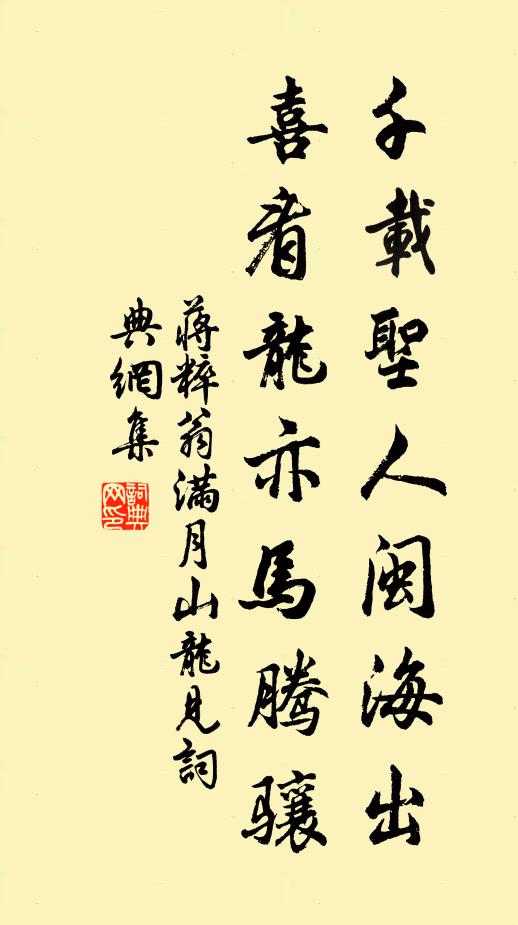 千載聖人閩海出
喜看龍亦馬騰骧
蔣粹翁滿月山龍見詞
典網集
詞典
网印